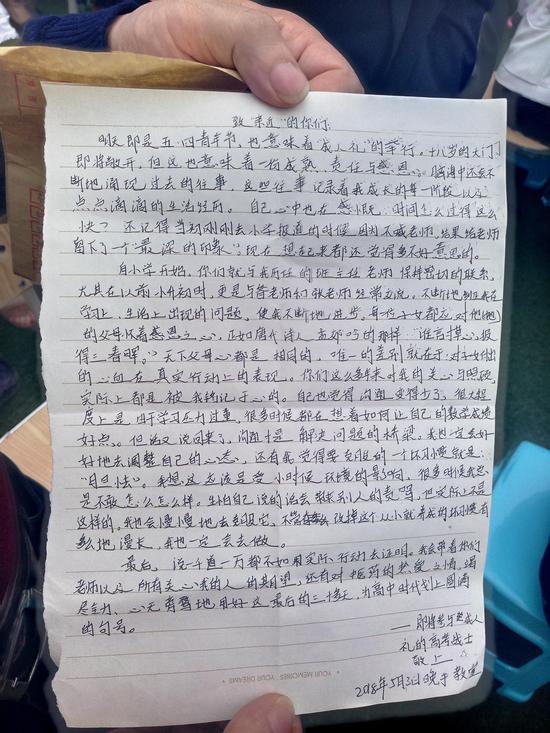 致"亲近"的你们:
明天即是五·四青年节,也意味着"成人礼"的举行。十八岁的大门
即将敞开,但这也意味着一份成熟、责任与感恩。脑海中还会不
断地涌现过去的往事,这些往事记录着我成长的每一阶段以及
点点滴滴的生活经历。自己心中也在感慨:时间怎么过得这么
快?还记得当初刚刚去小学报道的时候,因为不喊老师,结果给老师
留下了一个"最深的印象",现在想起来都还觉得多不好意思的。
自小学开始,你们就与我所在的班主任老师保持密切的联系,
尤其在以前小升初时,更是与曾老师们张老师经常交流。不断地纠正我在
学习上、生活上出现的问题,使我不断地进步。每位子女都应对他(她)
的父母怀着感恩之心,正如唐代诗人孟郊吟的那样:"谁言寸草心,报
得三春晖。"天下父母心都是相同的,唯一的差别就在于对子女付出
的心血在真实行动上的表现。你们这么多年来对我的关心与照顾,
实际上都是被我铭记于心的。自己也觉得沟通变得少了,很大程
度上是由于学习压力过重,很多时候都在想着如何让自己的数学成绩
好点。但话又说回来了,沟通才是解决问题的桥梁。我也一定会好
好地去调整自己的心态,还有我觉得要克服的一个坏习惯就是:
"胆怯"。我想,这应该是受小时候环境的影响,很多时候我总
是不敢怎么怎么样。生怕自己说的话会引来别人的责骂,但实际上不是
这样的,我会慢慢地去克服它,不管改掉这个从小就养成的坏习惯有
多么地漫长,我也一定会去做。
最后,说一千道一万都不如用实际行动去证明。我会带着你们、
老师以及所有关心我的人的期望,还有对中医药的热爱之情,竭
尽全力、心无旁骛地用好这最后的三十多天,为高中时代划上圆满
的句号。
——即将参与型成人
礼的高考战士
敬上
2018年5月3日晚于教室
YOUR MEMORIES YOUR DREAMS